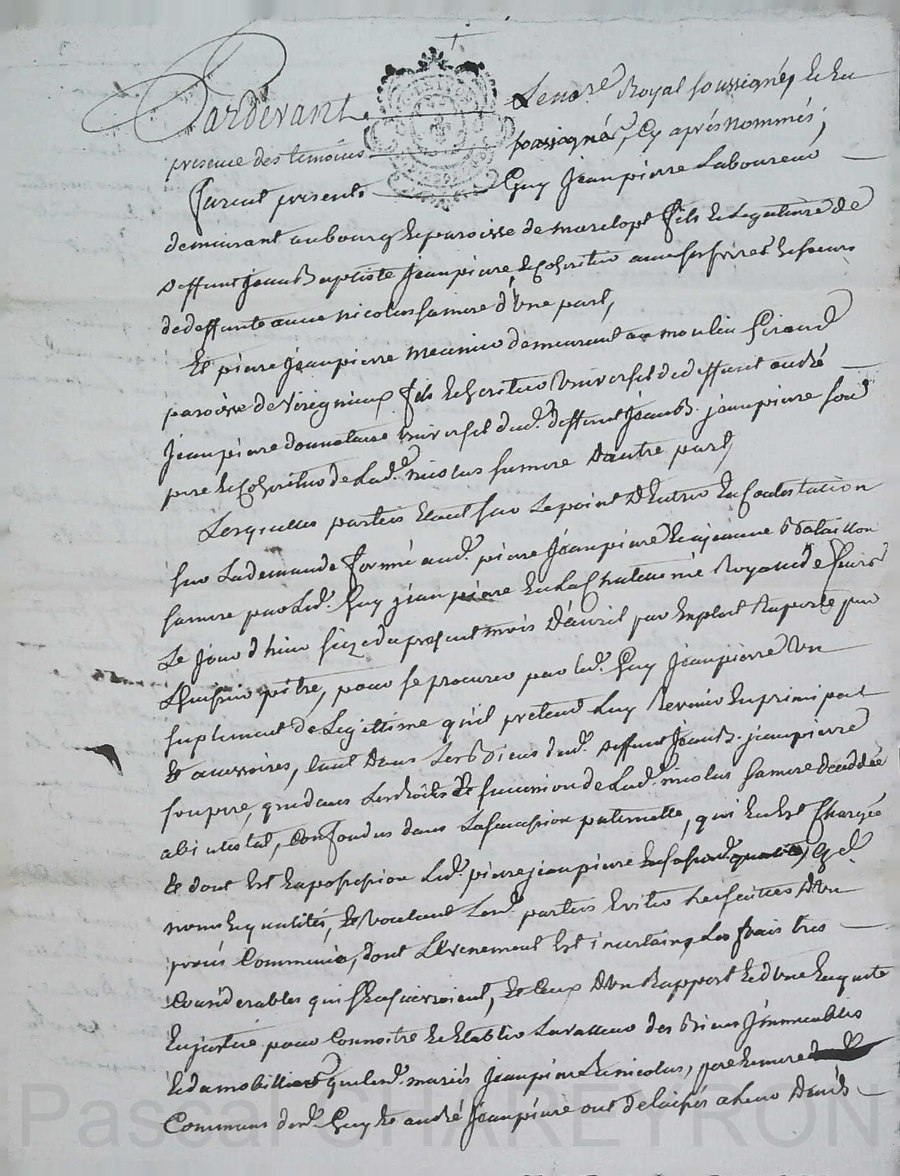 Pardevant Le no.re Royal soussigné, et en
presence des temoins soussignés, cy après nommés,
Furent presents Guy Jeanpierre Laboureur
demeurant au bourg et paroisse de marclopt fils et Legataire de
deffunt Jean Baptiste Jeanpierre, et coheritier avec ses freres et soeurs
de deffunte anne nicolas sa mere d'une part,
Et pierre Jeanpierre meunier demeurant au moulin Giraud
paroisse de fils et heritier universel de deffunt andré
Jeanpierre donnataire universel dud. deffunt Jean B. jeanpierre son
pere et coheritier de Lad. nicolas sa mere d'autre part,
Lesquelles parties etant sur Le point D'entrer en Contestation
sur La demande formé aud. pierre Jeanpierre et a jeanne Bataillon
sa mere par Led. Guy jeanpierre en La Chatelenie Royale de feurs
Le jour d'hier seize du present mois D'avril par Exploit Raporté par
L'huissier pitre, pour se procurer par led. Guy Jeanpierre un
suplement de Legittime qu'il pretend Luy Revenir En principal
et accessoires, tant Dans Les Biens dud. deffunt Jean B. jeanpierre
son pere, que dans Les droits de succession de Lad. nicolas sa mere decedée
abintestat, confondus dans La succession paternelle, qui En est Chargée
et dont Est En possession Led. pierre jeanpierre
noms et qualités, et voulant Lesd. parties Eviter Les suittes D'un
procés Commencé, dont L'Evenement Est incertain, Les frais tres
Considerables qui s'En suivroient, et Ceux D'un Rapport et d'une Enquete
En justice pour Connoitre et Etablir La valleur des Biens Immeubles
et du mobillier que lesd. mariés Jeanpierre et nicolas, pere et mere
Communs desd. Guy et andré Jeanpierre ont delaissés a Leur Decés
Pascal CHAREYRON